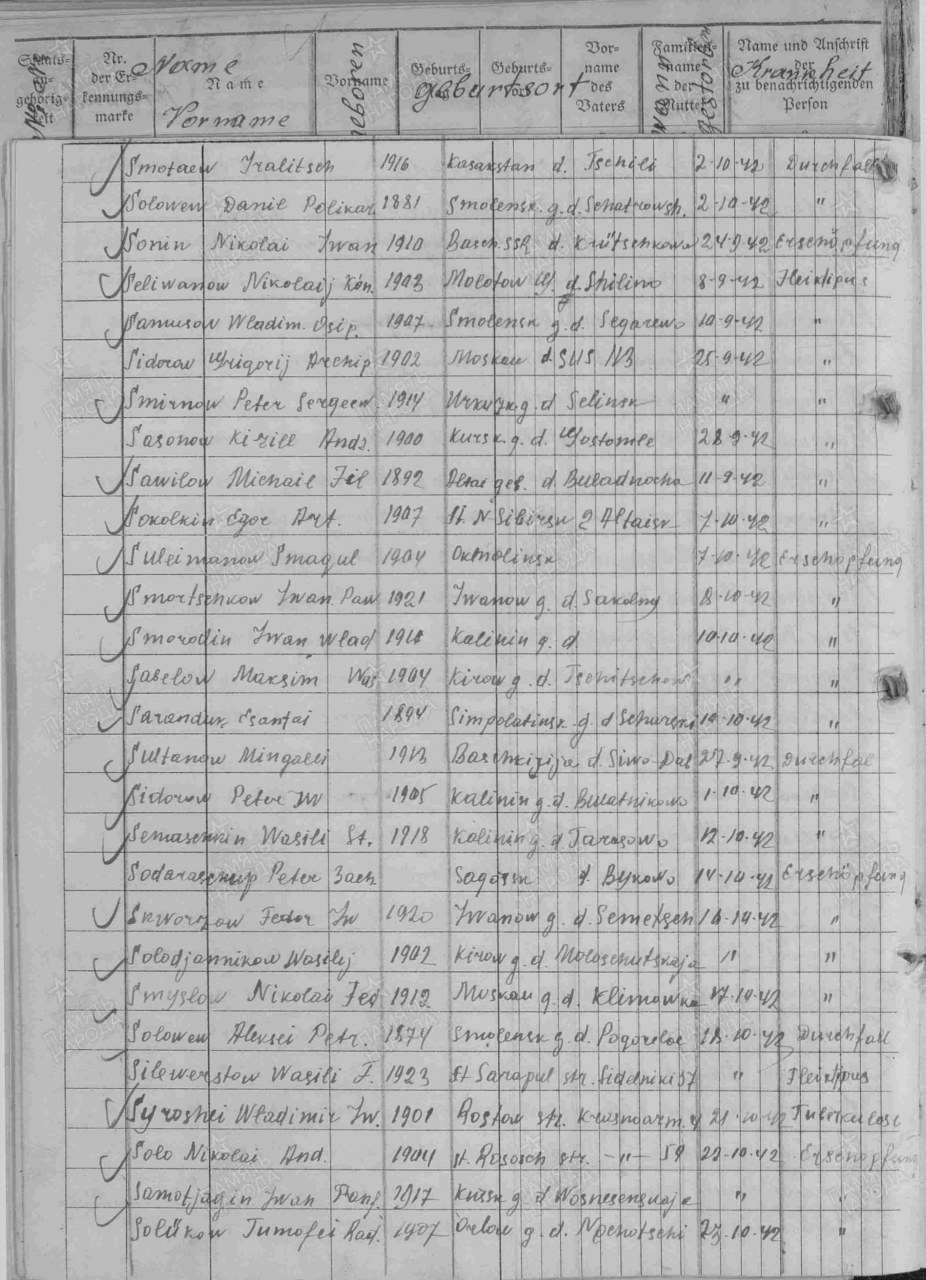 Staats-
an-
gehörig-
keit
Nr.
der Er-
kennungs-
marke
Name
Name
Vorname
Vorname
geboren
Geburts-
Geburts-
Geburtsort
Vor-
name
des
Vaters
Familien-
name
der
Mutter
wann
gestorben
Name und Anschrift
der
Krankheit
zu benachrichtigenden
Person
Smotaew Iralitsch 1916 Kasakstan d. Tschili 2-10-42 Durchfall
Solowew Danil Polikar. 1881 Smolensk. g.d. Schatrowsk. 2-10-42 "
Sonin Nikolai Iwan 1910 Basch. SSR d. Krütschkowo 24-9-42 Erschöpfung
Seliwanow Nikolaij Kón. 1903 Molotow d. Shilino 8-9-42 Flektipus
Samusow Wladim. Osip. 1907 Smolensk g.d. Segarewo 10-9-42 "
Sidorow Grigorij Archip 1902 Moskau d 25-9-42 "
Smirnow Peter Sergeew. 1914 g.d Selinsk " "
Sasonow Kirill And. 1900 Kursk g. d. Gostomle 28-9-42 "
Sawilow Michail Fil 1892 Altai geb. d. Buladnocha 11-9-42 "
Sokolkin Egor Art. 1907 St N Sibirsk 2 Altaisk 7-10-42 "
Suleimanow Smagul 1904 Okmolinsk 7-10-42 Erschöpfung
Smortschkow Iwan Paw 1921 Iwanow g. d. Sakolny 8-10-42 "
Smorodin Iwan Wlad 191 Kalinin g. d. 10-10-42 "
Gaselow Maksim Was 1904 Kirow g. d. " "
Saranduk Esantai 1894 Simpolatinsk g. d 19-10-42 "
Sultanow Mingalei 1913 Baschkizija d. Siwo-Das 27-9-42 Durchfal
Sidorow Peter Iw 1905 Kalinin g.d. Bulatnikowo 1-10-42 "
Semaschkin Wasili St. 1918 Kalinin g. d. Tarasowo 12-10-42 "
Peter Zach Sagorsk d. Bykowo 14-10-42 Erschöpfung
Skworzow Fedor Iw 1920 Iwanow g. d. Semetsch 16-10-42 "
Solodjannikow Wasilij 1902 Kirow g. d. Moloschutskaja " "
Smyslow Nikolai Fed 1912 Moskau g. d. Klimowka 17-10-42 "
Solowew Aleksei Petr. 1874 Smolensk g. d. Pogoreloe 18-10-42 Durchfall
Silewerstow Wasili F. 1923 St Sarapul str. Siddniki 57 " Flektipus
Syroshei Wladimir Iw. 1901 Rostow str. Krasnoarm. 4 21-10-42 Tuberkulose
Solo Nikolai And. 1904 st. Rososch str. -"- 59 22-10-42 Erschöpfung
Samotjagin Iwan Panf. 1917 Kursk g d Wosnesenskaja " "
Solükow Tumofei Rad. 1907 Orlow g. d. Nochotschi 23-10-42 "